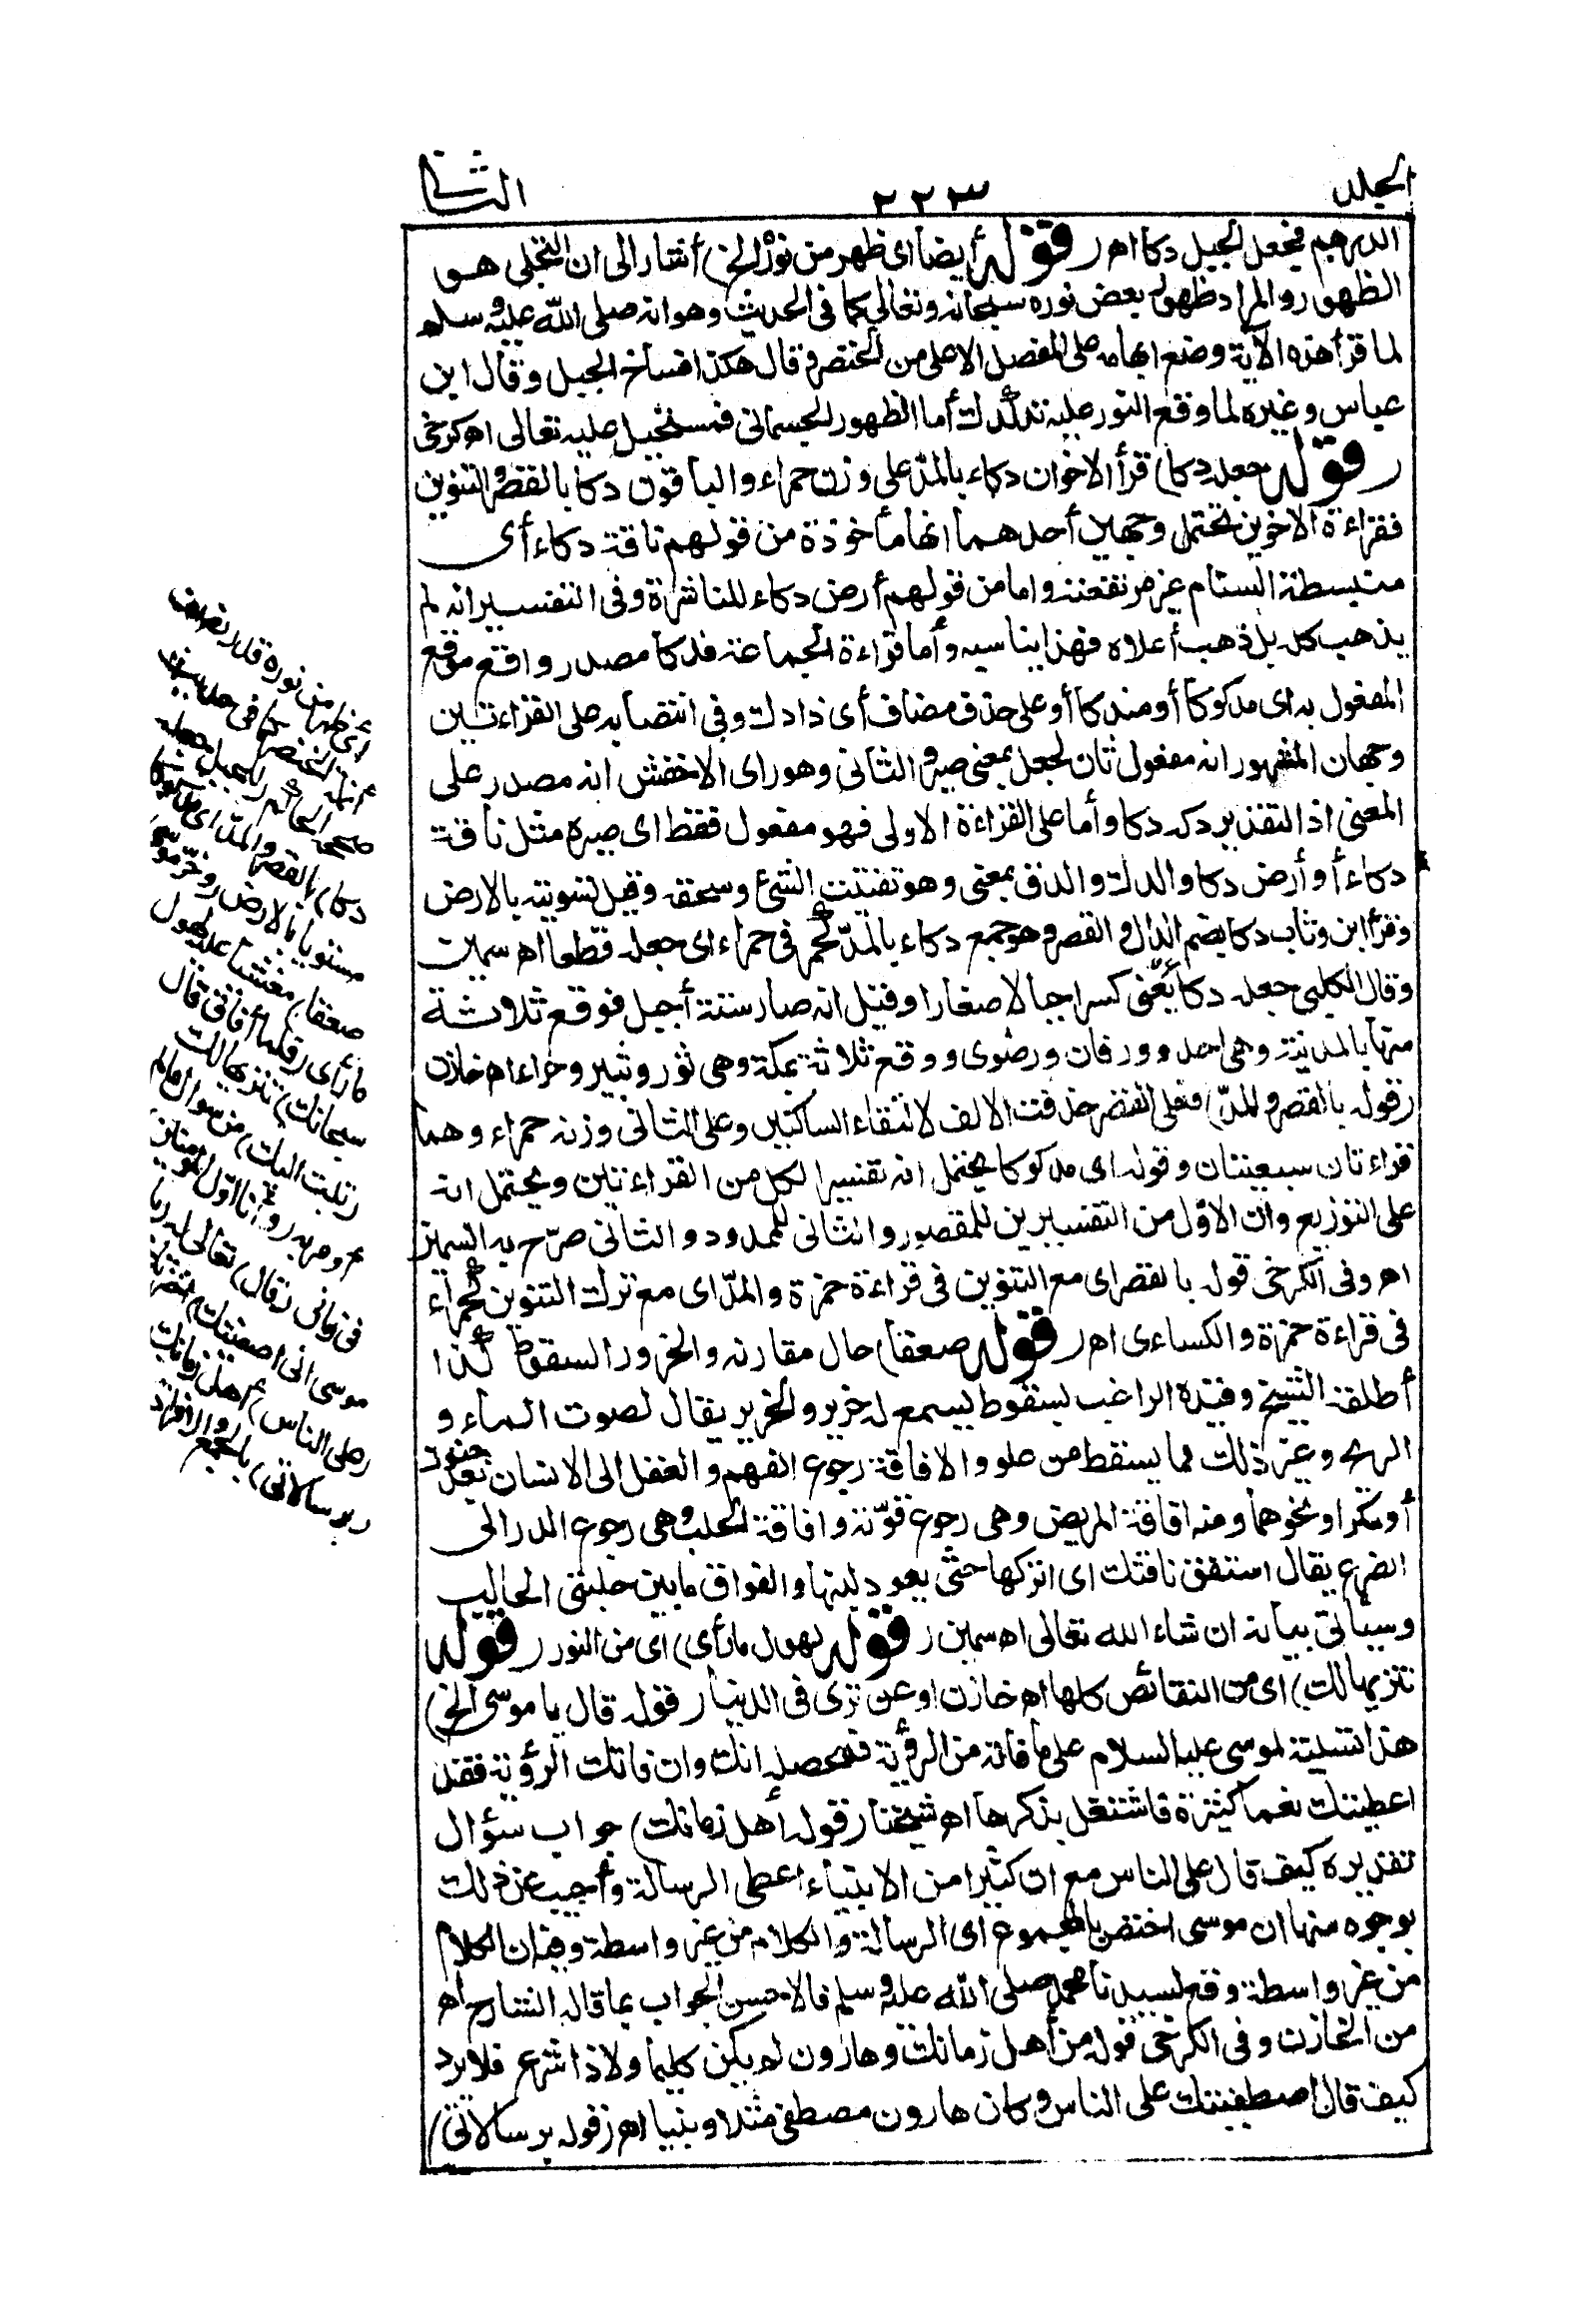 الجلد
٢٢٣
الثانى
الدرهم فجعل الجبل دكا اه (قوله أيضا اى ظهر من نوره الخ) أشار الى ان التجلى هو
الظهور والمراد ظهور بعض نوره سبحانه وتعالى كما فى الحديث وهو انه صلى الله عليه وسلم
لما قرأ هذه الآية وضع ابهامه على المفصل الاعلى من الخنصر وقال هكذا فساخ الجبل وقال ابن
عباس وغيره لما وقع النور عليه تدكدك أما الظهور الجسمانى فمستحيل عليه تعالى اه كرخى
(قوله جعله دكا) قرأ الاخوان دكاء بالمد على وزن حمراء والباقون دكا بالقصر والتنوين
فقراءة الاخوين تحتمل وجهين أحدهما انها مأخوذة من قولهم ناقة دكاء أى
منبسطة السنام غير مرتفعته واما من قولهم أرض دكاء للناشزة وفى التفسير انه لم
يذهب كله بل ذهب أعلاه فهذا يناسبه وأما قراءة الجماعة فدكا مصدر واقع موقع
المفعول به اى مدكوكا أو مندكا أو على حذف مضاف أى ذا دك وفى انتصابه على القراءتين
وجهان المشهور انه مفعول ثان لجعل بمعنى صير والثانى وهو راى الاخفش انه مصدر على
المعنى اذ التقدير دكه دكا وأما على القراءة الاولى فهو مفعول فقط اى صيره مثل ناقة
دكاء أو أرض دكا والدك والدق بمعنى وهو تفتيت الشئ وسحقه وقيل تسويته بالارض
وقرأ ابن وثاب دكا بضم الدال والقصر وهو جمع دكاء بالمد كحمر فى حمراء اى جعله قطعا اه سمين
وقال الكلبى جعله دكا يعنى كسرا جبالا صغارا وقيل انه صار ستة أجبل فوقع ثلاثة
منها بالمدينة وهى احد وورقان ورضوى ووقع ثلاثة بمكة وهى ثور وثبير وحراء اه خازن
(قوله بالقصر والمد) فعلى القصر حذفت الالف لالتقاء الساكنين وعلى الثانى وزنه حمراء وهما
قراءتان سبعيتان وقوله اى مدكوكا يحتمل انه تفسير الكل من القراءتين ويحتمل انه
على التوزيع وان الاول من التفسيرين للمقصور والثانى للممدود والثانى صرح به السمين
اه وفى الكرخى قوله بالقصر اى مع التنوين فى قراءة حمزة والمد اى مع ترك التنوين كحمراء
فى قراءة حمزة والكساءى اه (قوله صعقا) حال مقارنه والخرور السقوط كذا
أطلقه الشيخ وقيده الراغب بسقوط يسمع له خرير والخرير يقال لصوت الماء و
الريح وغير ذلك مما يسقط من علو والافاقة رجوع الفهم والعقل الى الانسان بعد جنون
أو سكر او نحوهما ومنه افاقة المريض وهى رجوع قوته وافاقة الحلب وهى رجوع الدر الى
الضرع يقال استفق ناقتك اى اتركها حتى يعود لبنها والفواق ما بين حلبتى الحالب
وسيأتى بيانه ان شاء الله تعالى اه سمين (قوله لهول ما رأى) اى من النور (قوله
تنزيها لك) اى من النقائص كلها اه خازن او عن ترى فى الدنيا (قوله قال يا موسى الخ)
هذا تسلية لموسى عليه السلام على ما فاته من الرؤية فمحصله انك وان فاتك الرؤية فقد
اعطيتك نعما كثيرة فاشتغل بذكرها اه شيخنا (قوله أهل زمانك) جواب سؤال
تقديره كيف قال على الناس مع ان كثيرا من الانبياء اعطى الرسالة وأجيب عن ذلك
بوجوه منها ان موسى اختص بالمجموع اى الرسالة والكلام من غير واسطة وفيه ان الكلام
من غير واسطة وقع لسيدنا محمد صلى الله عليه وسلم فالاحسن الجواب بما قاله الشارح اه
من الخازن وفى الكرخى قوله من أهل زمانك وهارون لم يكن كليما ولا ذا شرع فلا يرد
كيف قال اصطفيتك على الناس وكان هارون مصطفى مثله ونبيا اه (قوله برسالاتى)
أى ظهر من نوره قدر نصف
أنملة الخنصر كما فى حديث
صححه الحاكم (للجبل جعله
دكا) بالقصر والمد اى مدكوكا
مستويا بالارض (وخر موسى
صعقا) مغشيا عليه لهول
ما رأى (فلما أفاق قال
سبحانك) تنزيها لك
(تبت اليك) من سؤال ما لم
أومر به (وأنا اول المؤمنين)
فى زمانى (قال) تعالى له (يا
موسى انى اصطفيتك) اخترتك
(على الناس) أهل زمانك
(برسالاتى) بالجمع والافراد